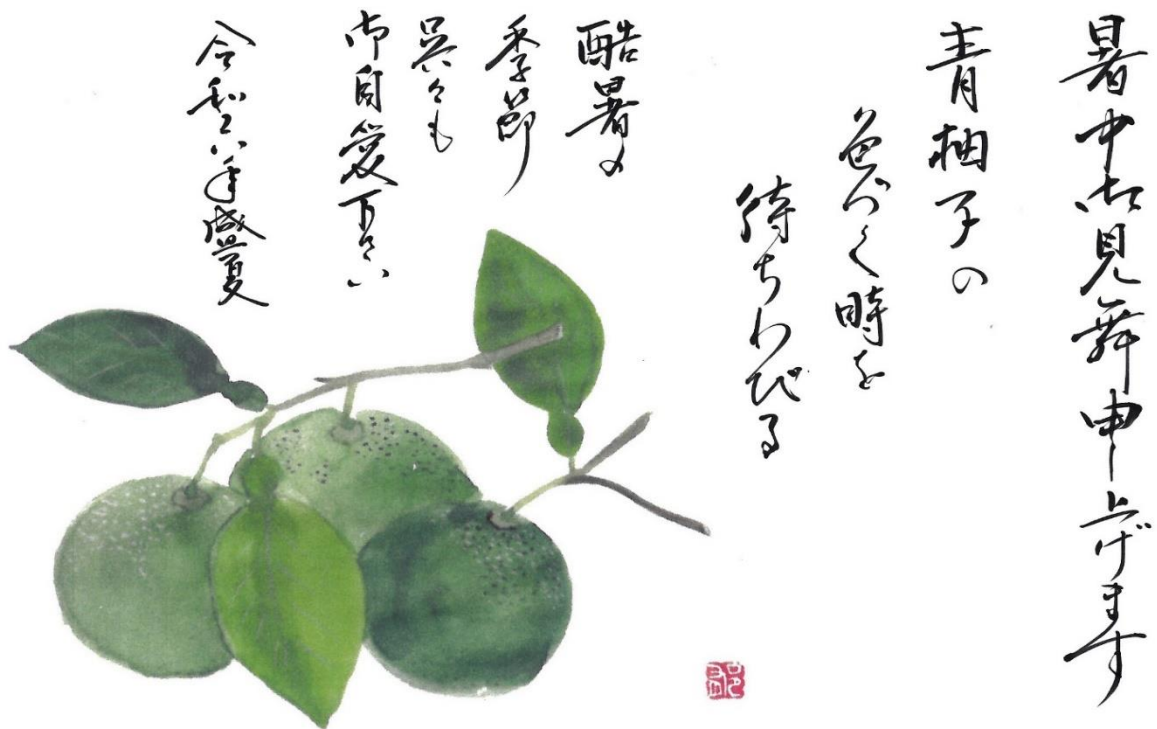 暑中お見舞申し上げます
青柚子の
色づく時を
待ちわびる
酷暑の
季節
呉々も
御自愛下さい
令和六年盛夏